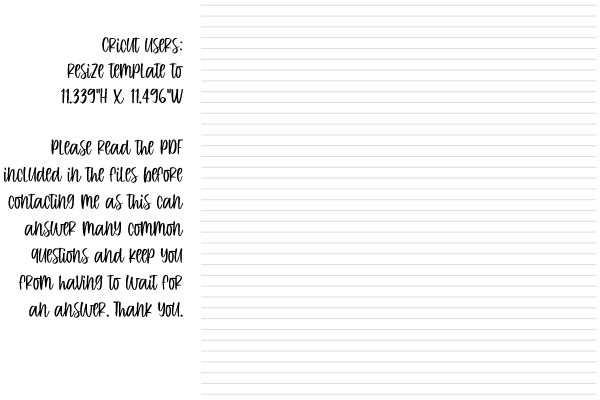 Cricut Users:
Resize template to
11.339"H X 11.496"W
Please read the PDF
included in the files before
contacting me as this can
answer many common
questions and keep you
from having to wait for
an answer. Thank you.